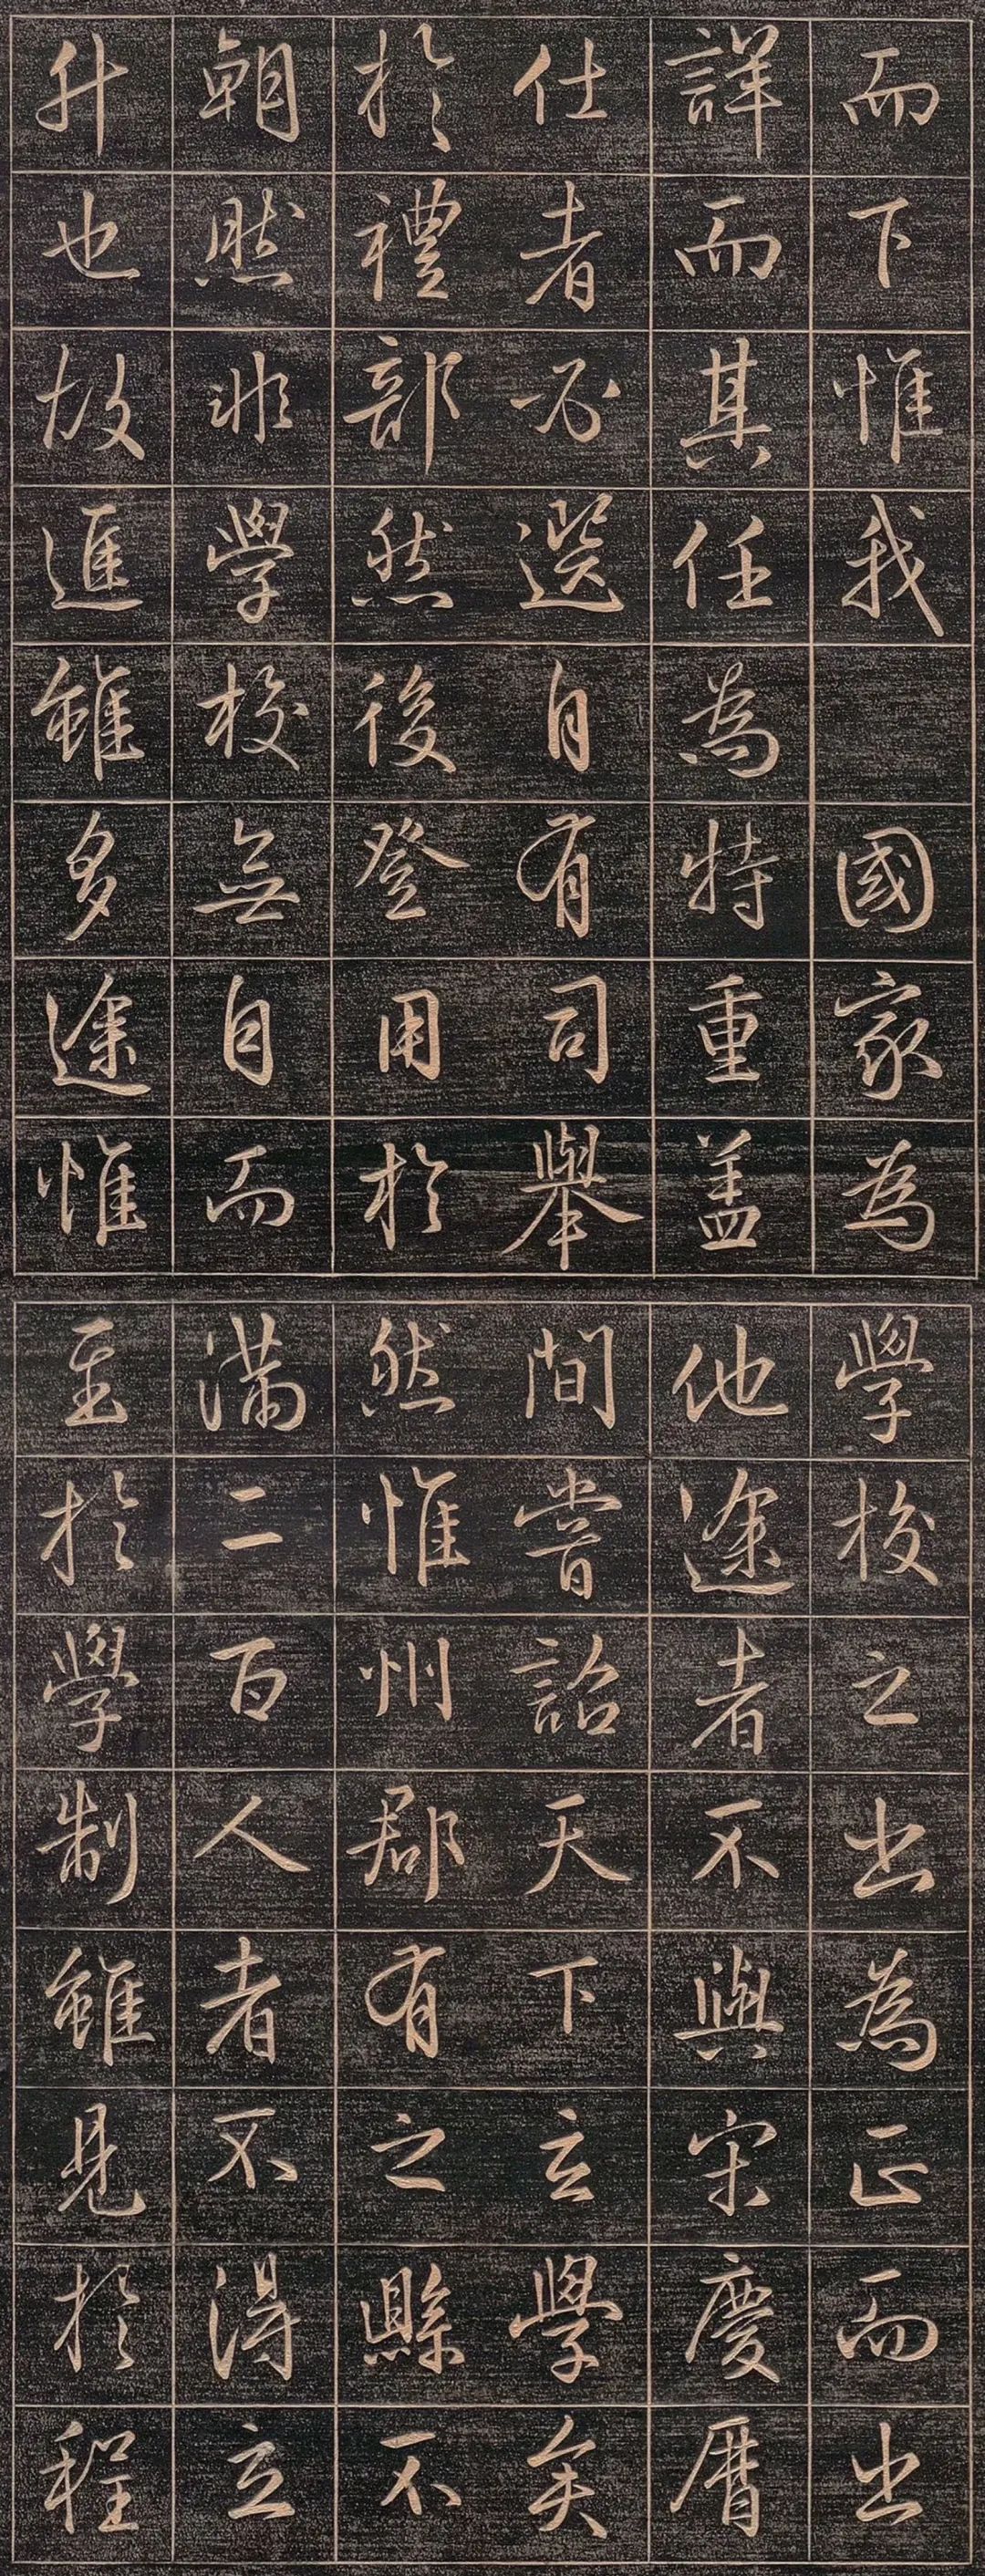 而下惟我 國家為
詳而其任為特重盖
仕者必選自有司舉
於禮部然後登用於
朝然非學校無自而
升也故進雖多途惟
學校之出為正而出
他途者不與宋慶曆
間嘗詔天下立學矣
然惟州郡有之縣不
滿二百人者不得立
至於學制雖見於程